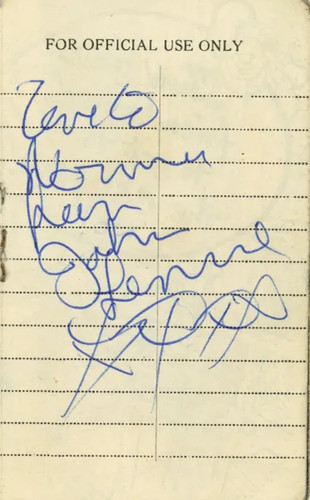 FOR OFFICIAL USE ONLY
love to
from
John
Lennon